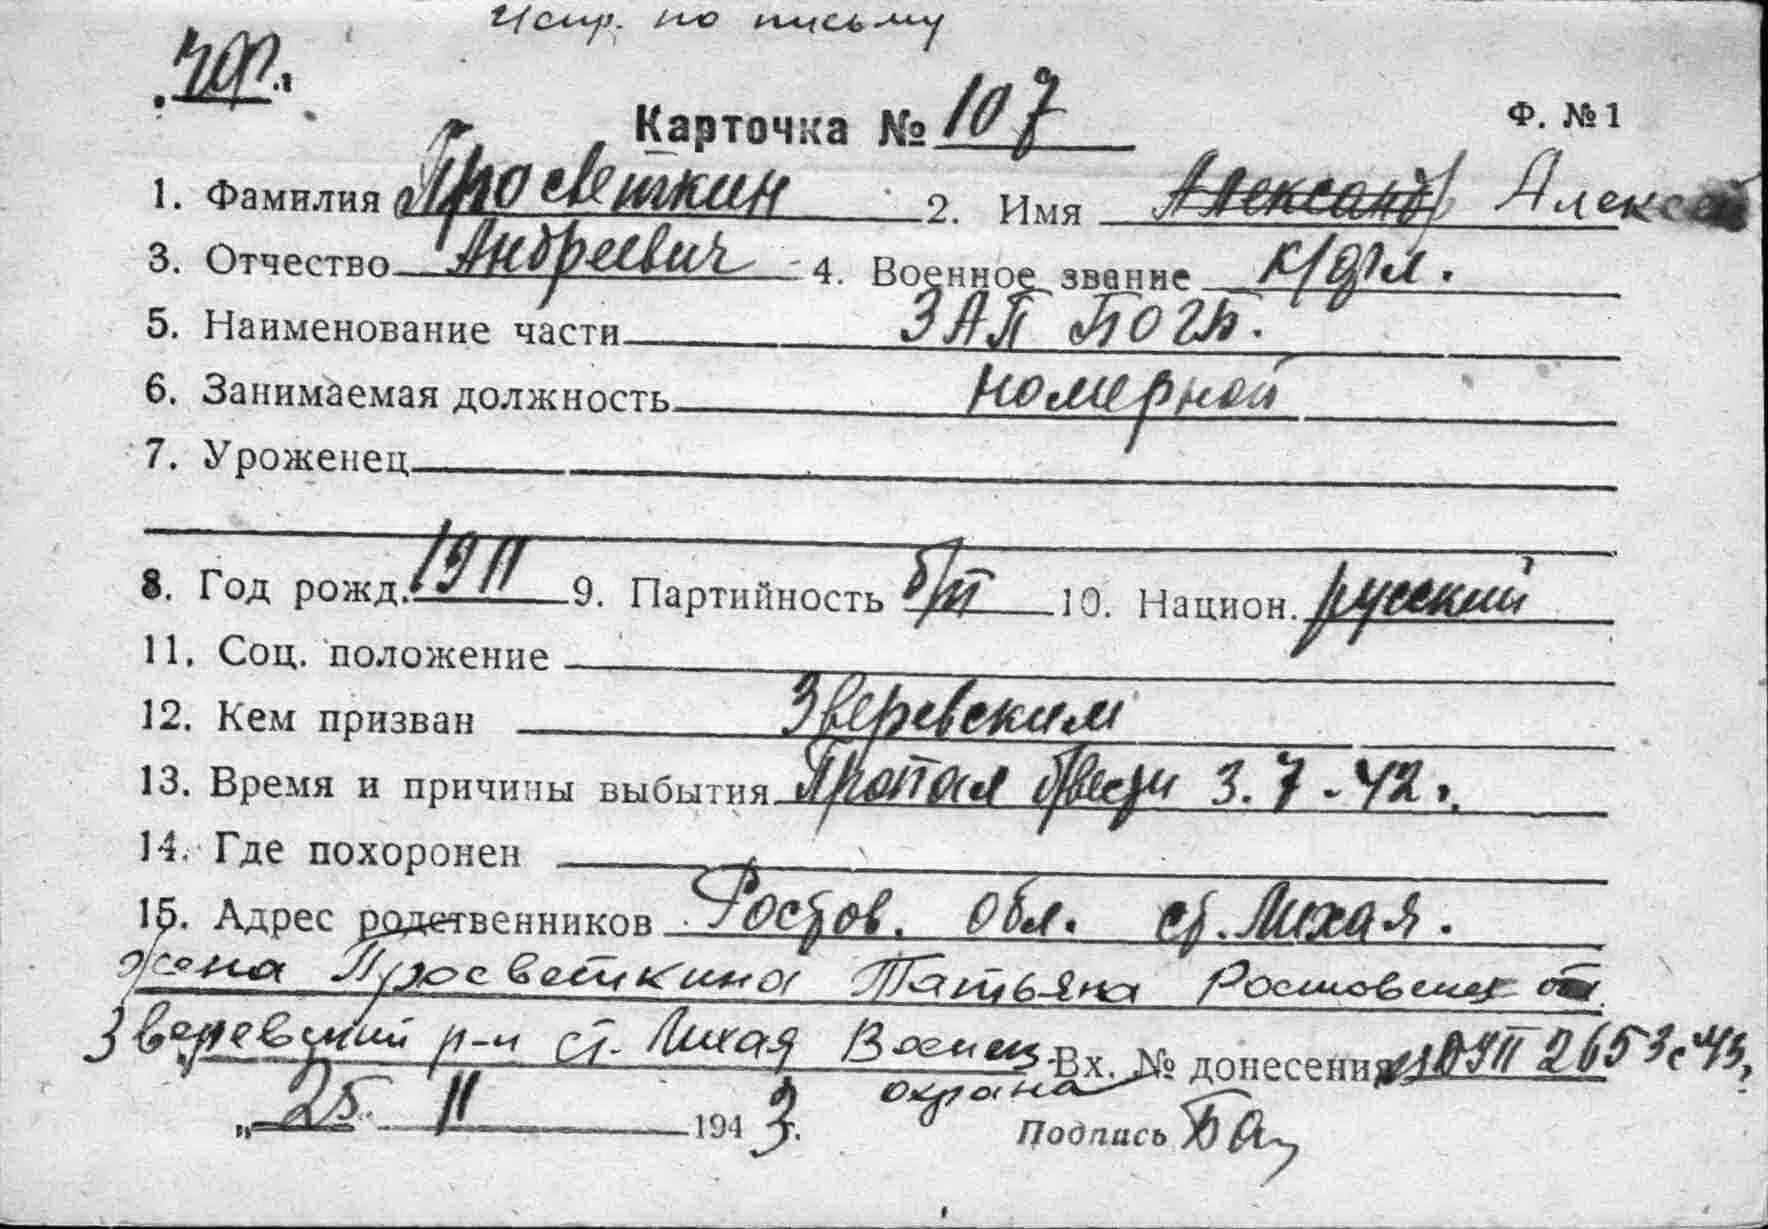 Испр. по письму
Карточка № 107
Ф. № 1
1. Фамилия Просветкин 2. Имя Александр Алексей
3. Отчество Андреевич 4. Военное звание к/фл.
5. Наименование части ЗАП БОГБ.
6. Занимаемая должность номерной
7. Уроженец
8. Год рожд. 1911 9. Партийность б/п 10. Национ. русский
11. Соц. положение
12. Кем призван Зверевским
13. Время и причины выбытия Пропал б/вести 3.7-42 г.
14. Где похоронен
15. Адрес родственников Ростов. обл. ст. Лихая.
жена Просветкина Татьяна Ростовская
Зверевский р-н ст. Лихая Воениз.
охрана
Вх. № донесения 2653с 43г
„25“ 11 1943.
Подпись